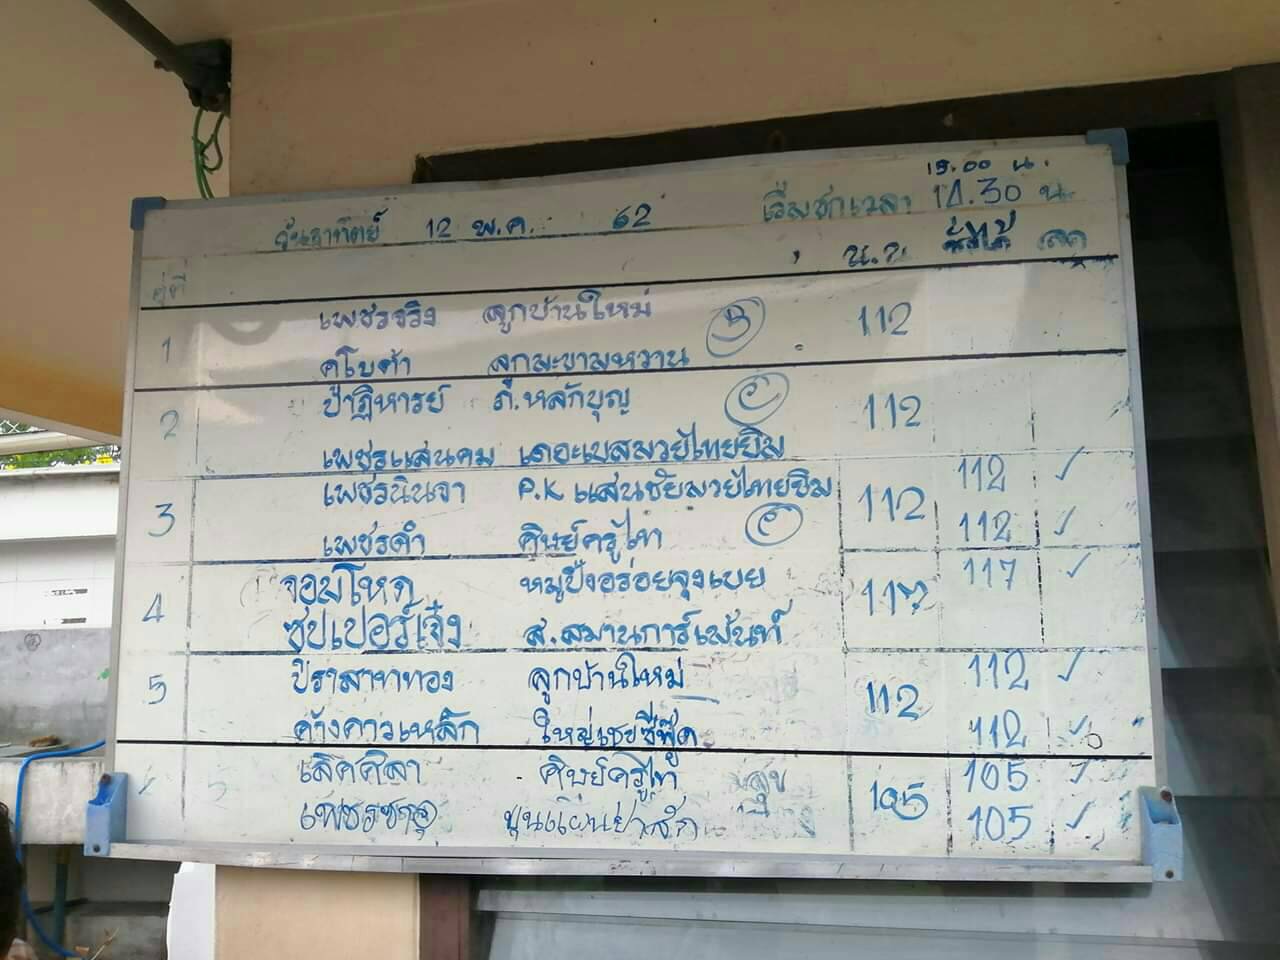 15.00 น.
วันอาทิตย์ 12 พ.ค. 62 เริ่มชกเวลา 14.30 น
คู่ที่ น.น. ชั่งได้
เพชรจริง ลูกบ้านใหม่
1 112
คโบต้า ลูกมะขามหวาน
ปาฏิหารย์ ภ.หลักบุญ
2 112
เพชรแสนคม เดอะเบสมวยไทยยิม
เพชรนินจา P.K แสนชัยมวยไทยยิม 112 ✓
3 112
เพชรดำ ศิษย์ครูไก่ 112 ✓
จอมโหด หมูปิ้งอร่อยจุงเบย 117 ✓
4 117
ซุปเปอร์เจ๋ง ส.สมานการ์เม้นท์
ปราสาททอง ลูกบ้านใหม่ 112 ✓
5 112
ค้างคาวเหล็ก ใหญ่เชยซีฟู๊ด 112 ✓
เลิศศิลา ศิษย์ครูไก่ 105 ✓
105
105 ✓